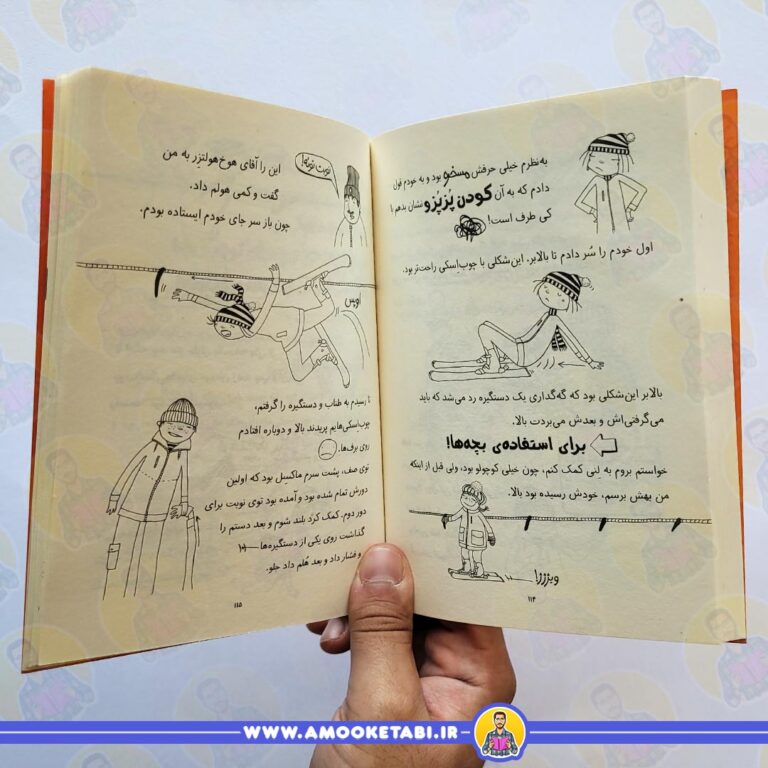 به‌نظرم خیلی حرفش مسخره بود و به خودم قول
دادم که به آن کودن پُزپُزو نشان بدهم با
کی طرف است!
اول خودم را سُر دادم تا بالابر. این‌شکلی با چوب‌اسکی راحت‌تر بود.
بالابر این‌شکلی بود که گه‌گداری یک دستگیره رد می‌شد که باید
می‌گرفتی‌اش و بعدش می‌بردت بالا.
برای استفاده‌ی بچه‌ها!
خواستم بروم به لِنی کمک کنم، چون خیلی کوچولو بود، ولی قبل از اینکه
من بهش برسم، خودش رسیده بود بالا.
ویژژژ!
۱۱۴
این را آقای هوخ‌هولتزر به من
گفت و کمی هولم داد،
چون باز سر جای خودم ایستاده بودم.
نوبت توئه!
اوپس
تا رسیدم به طناب و دستگیره را گرفتم،
چوب‌اسکی‌هایم پریدند بالا و دوباره افتادم
روی برف‌ها.
توی صف، پشت سرم ماکسیل بود که اولین
دورش تمام شده بود و آمده بود توی نوبت برای
دور دوم. کمک کرد بلند شوم و بعد دستم را
گذاشت روی یکی از دستگیره‌ها
و فشار داد و بعد هُلم داد جلو.
۱۱۵
WWW.AMOOKETABI.IR